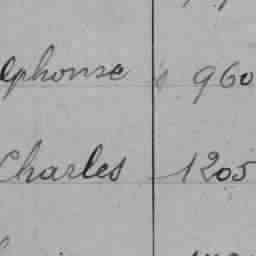 lphonse 960
Charles 1205